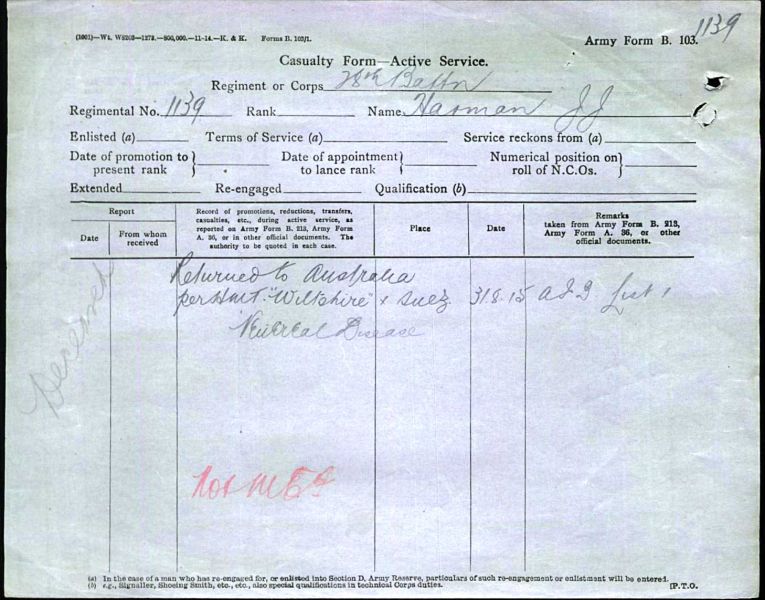 (1001)—Wt. W8203—1273.—800,000.—11-14.—K. & K. Forms B. 103/1.
1139
Army Form B. 103.
Casualty Form—Active Service.
Regiment or Corps 28th Battn
Regimental No. 1139 Rank Name Harman J J
Enlisted (a) Terms of Service (a) Service reckons from (a)
Date of promotion to present rank } Date of appointment to lance rank } Numerical position on roll of N.C.Os. }
Extended Re-engaged Qualification (b)
Report
Date
From whom received
Record of promotions, reductions, transfers, casualties, etc., during active service, as reported on Army Form B. 213, Army Form A. 36, or in other official documents. The authority to be quoted in each case.
Place
Date
Remarks
taken from Army Form B. 213, Army Form A. 36, or other official documents.
Returned to Australia
per HMT. "Wiltshire" Suez 31.8.15 List 1
Venereal Disease
Deceased
Not MEF
(a) In the case of a man who has re-engaged for, or enlisted into Section D, Army Reserve, particulars of such re-engagement or enlistment will be entered.
(b) e.g., Signaller, Shoeing Smith, etc., etc., also special qualifications in technical Corps duties.
[P.T.O.